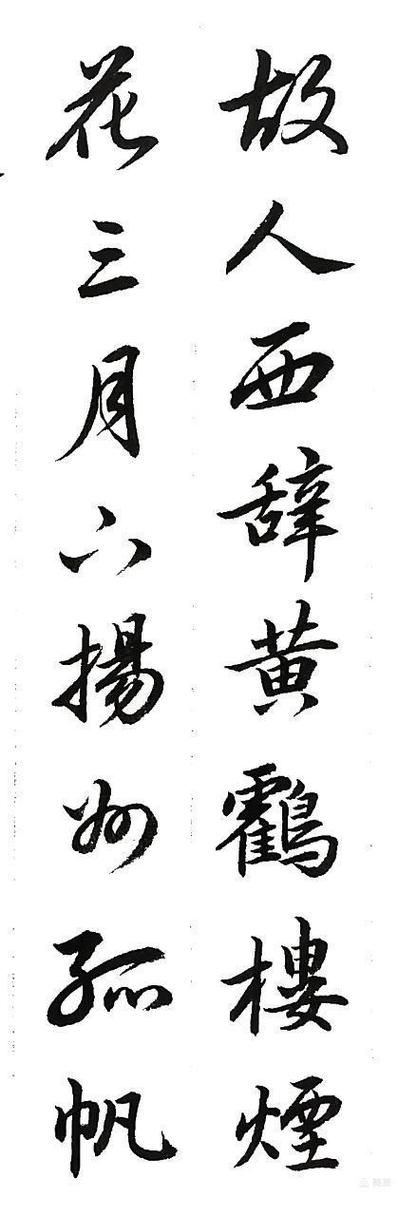 故人西辞黄鶴樓煙
花三月下揚州孤帆